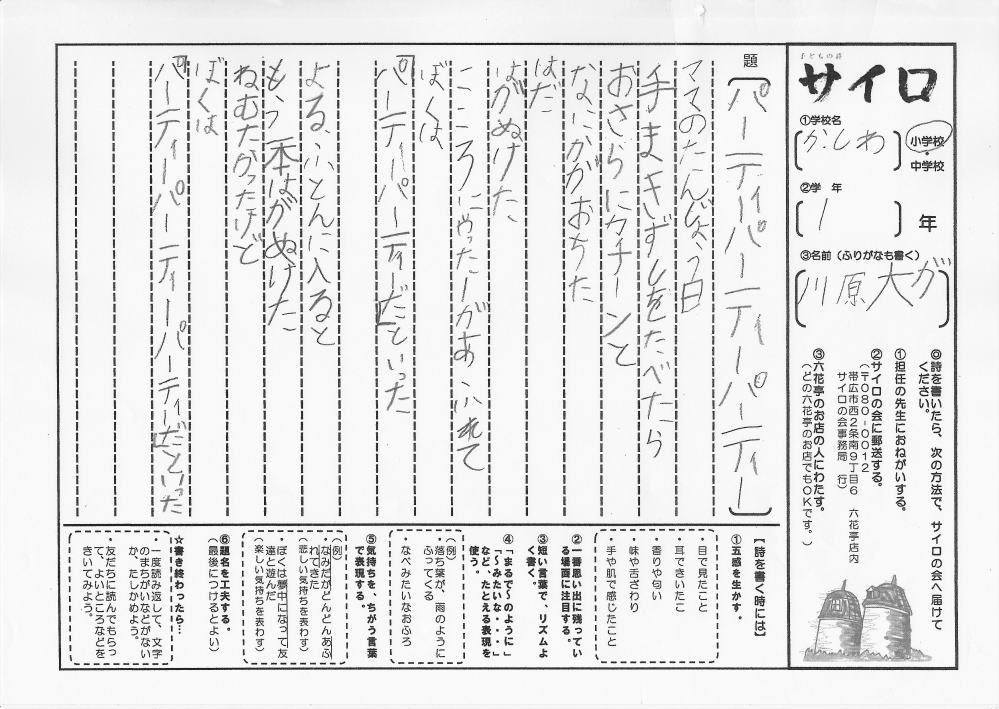 子どもの詩
サイロ
①学校名
かしわ
小学校
・
中学校
②学 年
1
年
③名前(ふりがなも書く)
川原大が
◎詩を書いたら、次の方法で、サイロの会へ届けて
ください。
①担任の先生におねがいする。
②サイロの会に郵送する。
(〒080-0012
帯広市西2条南9丁目6 六花亭店内
サイロの会事務局 行)
③六花亭のお店の人にわたす。
(どの六花亭のお店でもOKです。)
題
パーティパーティーパーティー
ママのたんじょう日
手まきずしをたべたら
おさらにカチーンと
なにかがおちた
はだ
はがぬけた
こころにやったーがあふれて
ぼくは
「パーティパーティーだ」といった
よる、ふとんに入ると
もう一本はがぬけた
ねむたかったけど
ぼくは
「パーティーパーティーパーティーだ」といった
【詩を書く時には】
①五感を生かす。
・目で見たこと
・耳できいたこ
・香りや匂い
・味や舌ざわり
・手や肌で感じたこと
②一番思い出に残ってい
る場面に注目する。
③短い言葉で、リズムよ
く書く。
④「まるで~のように」
「~みたいな・・・」
など、たとえる表現を
使う。
(例)
・落ち葉が、雨のように
ふってくる
・なべみたいなおふろ
⑤気持ちを、ちがう言葉
で表現する。
(例)
・なみだがどんどんあふ
れてきた
(悲しい気持ちを表わす)
・ぼくは夢中になって友
達と遊んだ
(楽しい気持ちを表わす)
⑥題名を工夫する。
(最後につけるとよい)
☆書き終わったら…
・一度読み返して、文字
のまちがいなどがない
か、たしかめよう。
・友だちに読んでもらっ
て、よいところなどを
きいてみよう。